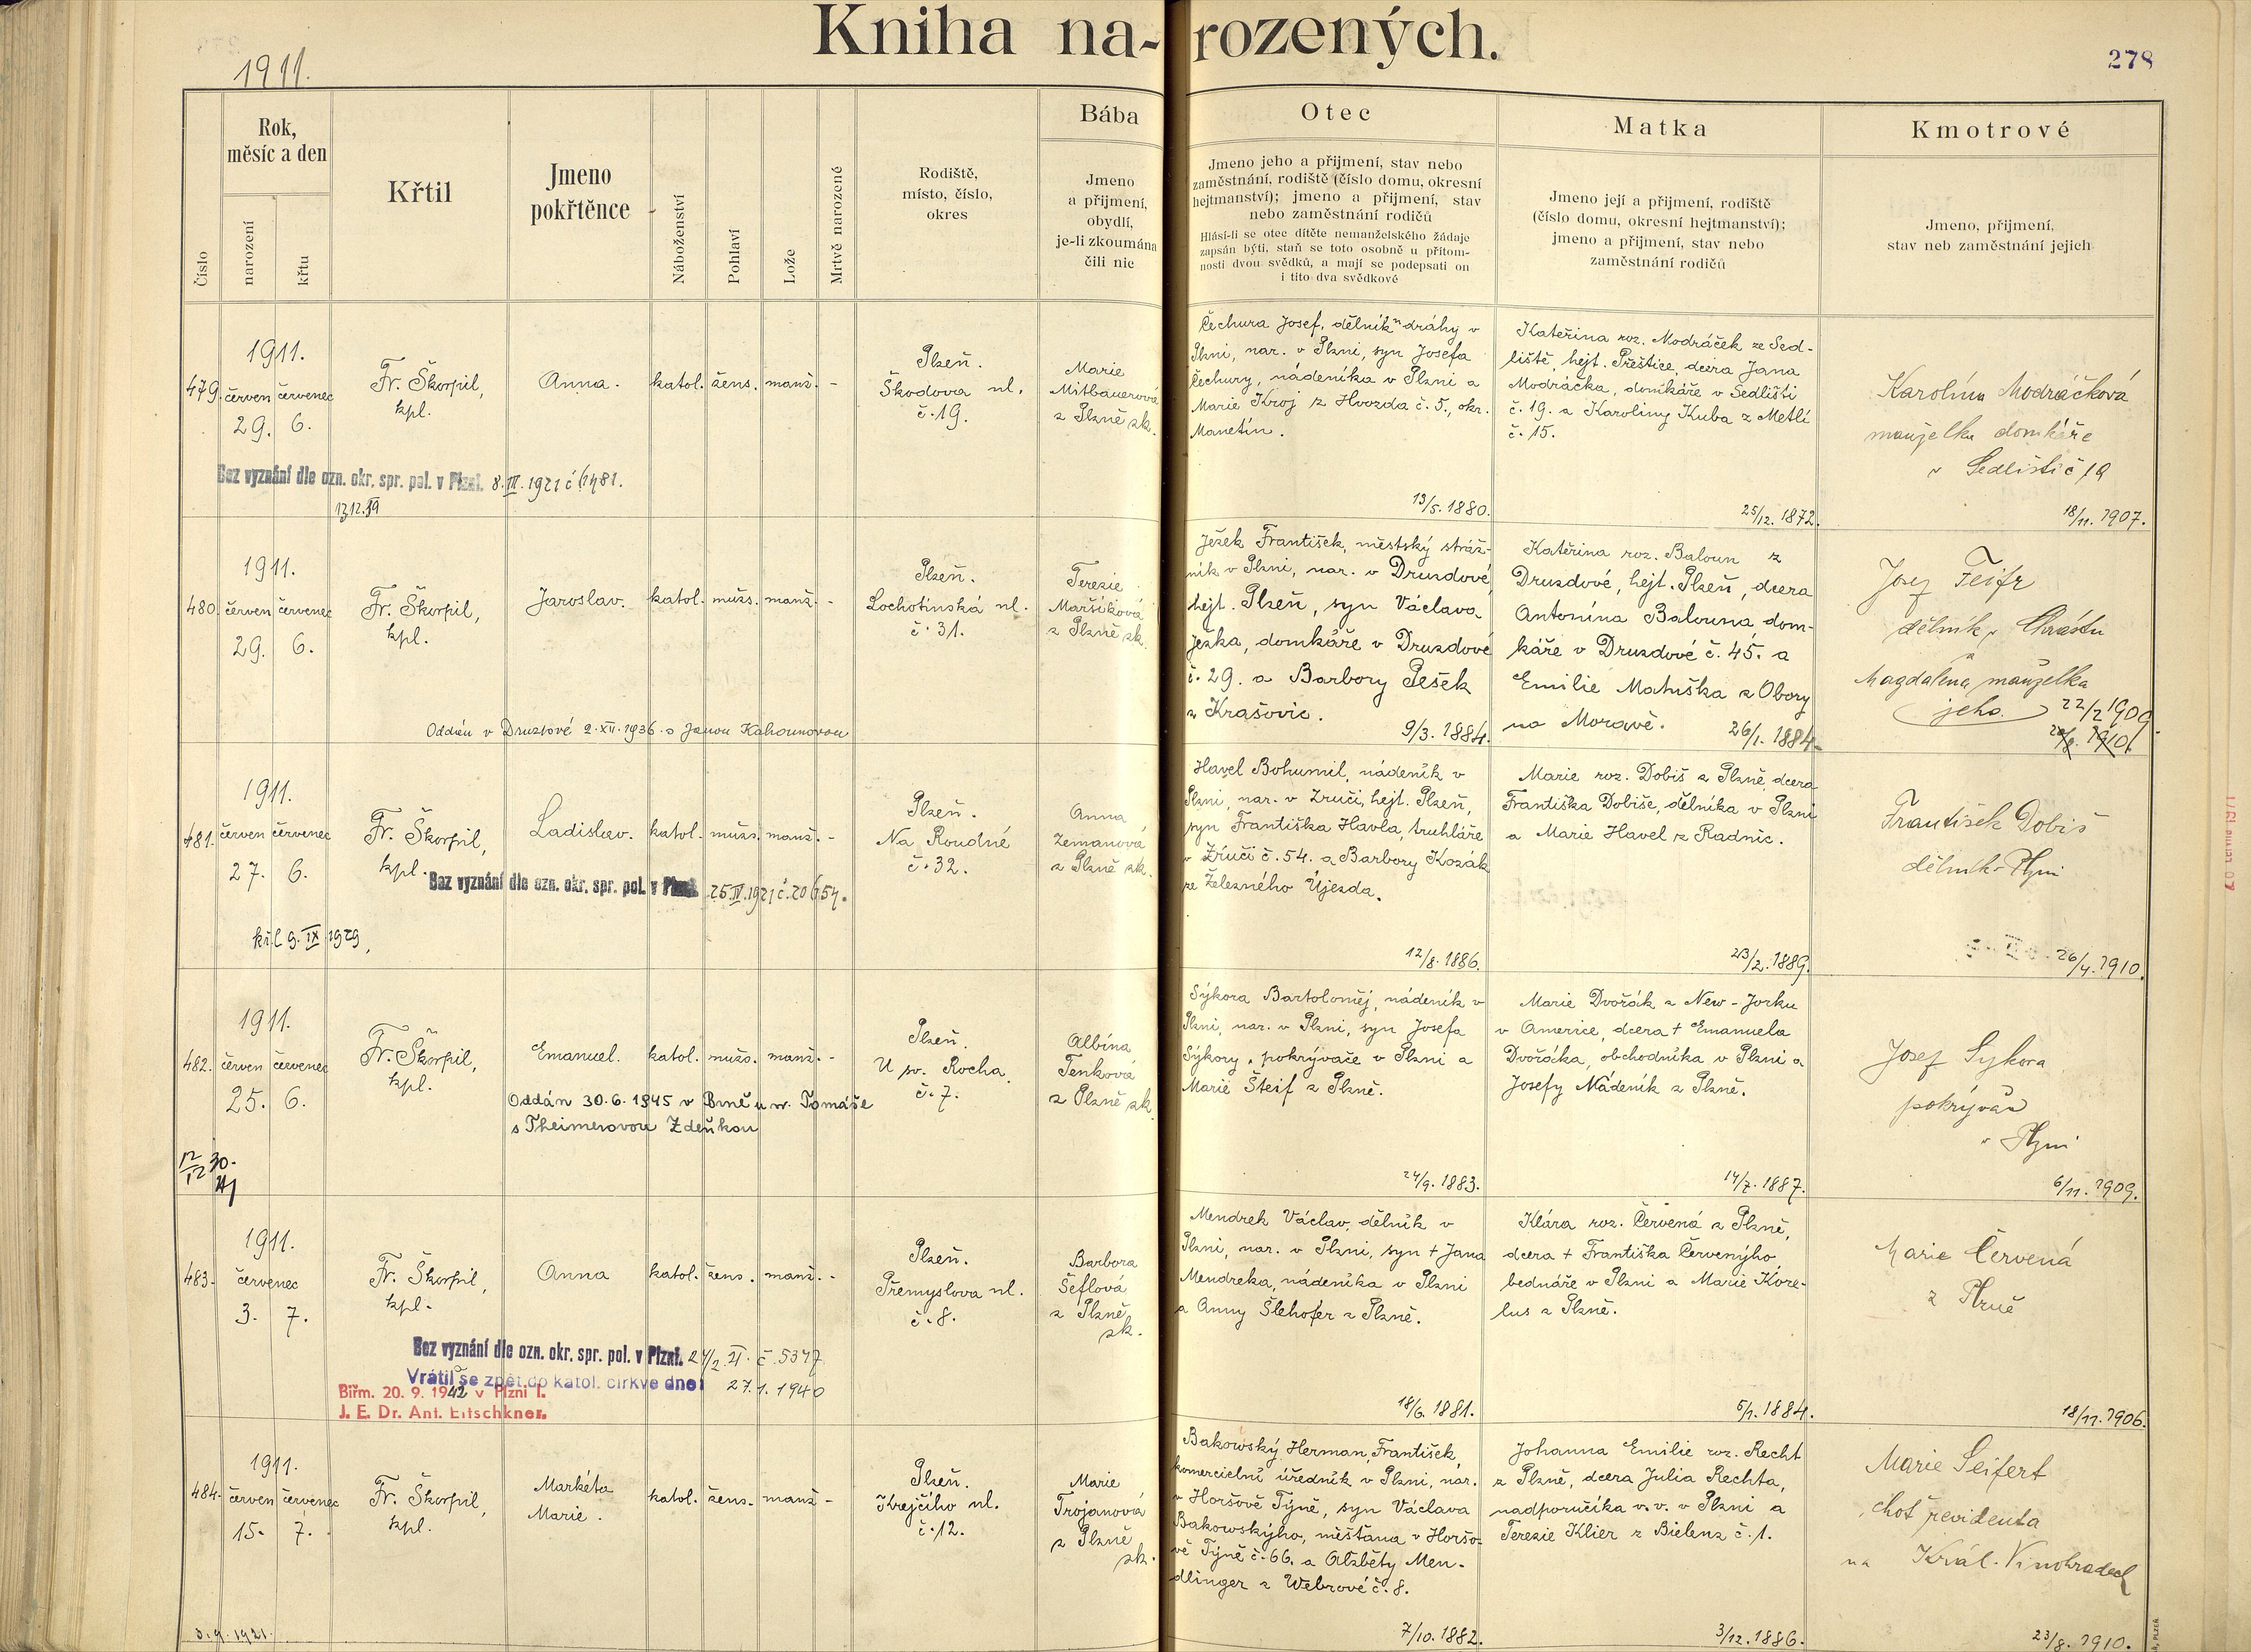 1911.
Kniha narozených.
278
Číslo
Rok,
měsíc a den
narození
křtu
Křtil
Jmeno
pokřtěnce
Náboženství
Pohlaví
Lože
Mrtvě narozené
Rodiště,
místo, číslo,
okres
Bába
Jmeno
a přijmení,
obydlí,
je-li zkoumána
čili nic
Otec
Jmeno jeho a přijmení, stav nebo
zaměstnání, rodiště (číslo domu, okresní
hejtmanství); jmeno a přijmení, stav
nebo zaměstnání rodičů
Hlásí-li se otec dítěte nemanželského žádaje
zapsán býti, staň se toto osobně u přítom-
nosti dvou svědků, a mají se podepsati on
i tito dva svědkové
Matka
Jmeno její a přijmení, rodiště
(číslo domu, okresní hejtmanství);
jmeno a přijmení, stav nebo
zaměstnání rodičů
Kmotrové
Jmeno, přijmení,
stav neb zaměstnání jejich
479.
1911.
červen červenec
29. 6.
Fr. Škorpil,
kpl.
Anna.
katol. žens. manž. -
Plzeň.
Škodova ul.
č. 19.
Marie
Mitbauerová
z Plzně zk.
Čechura Josef, dělník dráhy v
Plzni, nar. v Plzni, syn Josefa
Čechury, nádeníka v Plzni a
Marie Kroj z Hvozda č. 5., okr.
Manetín.
13/5. 1880.
Kateřina roz. Modráček ze Sed-
liště, hejt. Přeštice, dcera Jana
Modráčka, domkáře v Sedlišti
č. 19. a Karoliny Kuba z Metlí
č. 15.
25/12. 1872.
Karolína Modráčková
manželka domkáře
v Sedlišti č 19
18/11. 1907.
Bez vyznání dle ozn. okr. spr. pol. v Plzni. 8.III.1921 č
480.
1911.
červen červenec
29. 6.
Fr. Škorpil,
kpl.
Jaroslav.
katol. mužs. manž. -
Plzeň.
Lochotínská ul.
č. 31.
Terezie
Maršíková
z Plzně zk.
Ježek František, městský stráž-
ník v Plzni, nar. v Druzdové,
hejt. Plzeň, syn Václava
Ježka, domkáře v Druzdové
č. 29. a Barbory Pešek
z Krašovic.
9/3. 1884.
Kateřina roz. Baloun z
Druzdové, hejt. Plzeň, dcera
Antonína Balouna dom-
káře v Druzdové č. 45. a
Emilie Matuška z Obory
na Moravě.
26/1. 1884.
Josef Feifr
dělník v Chrástu
a
Magdalena manželka
jeho.
22/2 1909.
Oddán v Druzdové 2. XII. 1936. s Janou Kahounovou
481.
1911.
červen červenec
27. 6.
Fr. Škorpil,
kpl.
Ladislav.
katol. mužs. manž. -
Plzeň.
Na Roudné
č. 32.
Anna
Zemanová
z Plzně zk.
Havel Bohumil, nádeník v
Plzni, nar. v Zruči, hejt. Plzeň,
syn Františka Havla, truhláře
v Zruči č. 54. a Barbory Kozák
ze Železného Újezda.
12/8. 1886.
Marie roz. Dobiš z Plzně, dcera
Františka Dobiše, dělníka v Plzni
a Marie Havel z Radnic.
23/2. 1889.
František Dobiš
dělník v Plzni
26/4. 1910.
Bez vyznání dle ozn. okr. spr. pol. v Plzni. 25.IV.1921 č. 20654.
kř. l 9. IX 1929,
482.
1911.
červen červenec
25. 6.
Fr. Škorpil,
kpl.
Emanuel.
katol. mužs. manž. -
Plzeň.
U sv. Rocha.
č. 7.
Albína
Tenková
z Plzně zk.
Sýkora Bartoloměj, nádeník v
Plzni, nar. v Plzni, syn Josefa
Sýkory, pokrývače v Plzni a
Marie Šteif z Plzně.
24/9. 1883.
Marie Dvořák z New-Jorku
v Americe, dcera + Emanuela
Dvořáka, obchodníka v Plzni a
Josefy Nádeník z Plzně.
14/7. 1887.
Josef Sykora
pokrývač
v Plzni
6/11. 1909.
Oddán 30.6.1945 v Brně u sv. Tomáše
s Theimerovou Zdeňkou
483.
1911.
červenec
3. 7.
Fr. Škorpil,
kpl.
Anna
katol. žens. manž. -
Plzeň.
Přemyslova ul.
č. 8.
Barbora
Šeflová
z Plzně
zk.
Mendrek Václav, dělník v
Plzni, nar. v Plzni, syn + Jana
Mendreka, nádeníka v Plzni
a Anny Šlehofer z Plzně.
18/6. 1881.
Klára roz. Červená z Plzně,
dcera + Františka Červenýho,
bednáře v Plzni a Marie Kore-
lus z Plzně.
5/1. 1884.
Marie Červená
z Plzně
18/11. 1906.
Bez vyznání dle ozn. okr. spr. pol. v Plzni. 24/2. 21. č. 5347
Vrátil se zpět do katol. církve dne 27.1.1940
Biřm. 20. 9. 1942 v Plzni I.
J. E. Dr. Ant. Eltschkner.
484.
1911.
červen červenec
15. 7.
Fr. Škorpil,
kpl.
Markéta
Marie.
katol. žens. manž. -
Plzeň.
Krejčího ul.
č. 12.
Marie
Trojanová
z Plzně
zk.
Bakowský Herman, František,
komercielní úředník v Plzni, nar.
v Horšově Týně, syn Václava
Bakowskýho, měšťana v Horšo-
vě Týně č. 66. a Alžběty Men-
dlinger z Webrové č. 8.
7/10. 1882.
Johanna Emilie roz. Recht
z Plzně, dcera Julia Rechta,
nadporučíka v. v. v Plzni a
Terezie Klier z Bielenz č. 1.
3/12. 1886.
Marie Seifert
choť revidenta
na Král. Vinohradech
23/8. 1910.
3. 9. 1921.